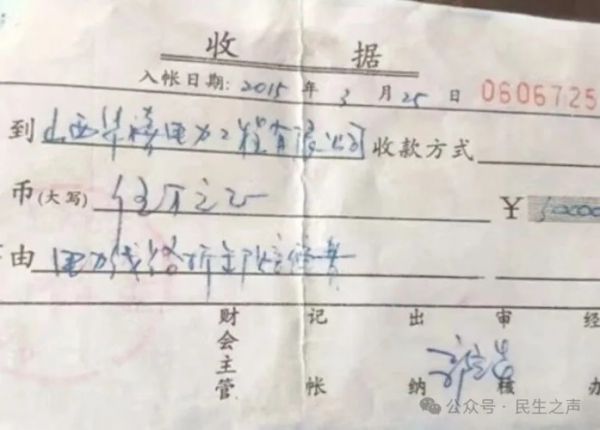 收 据
入帐日期: 2015 年 3 月 25 日 0606725
到 山西华 电力工程有限公司 收款方式
币(大写) 伍万元 ¥ 50000
由 电力线路
财会主管 记帐 出纳 审核 经办
公众号 · 民生之声